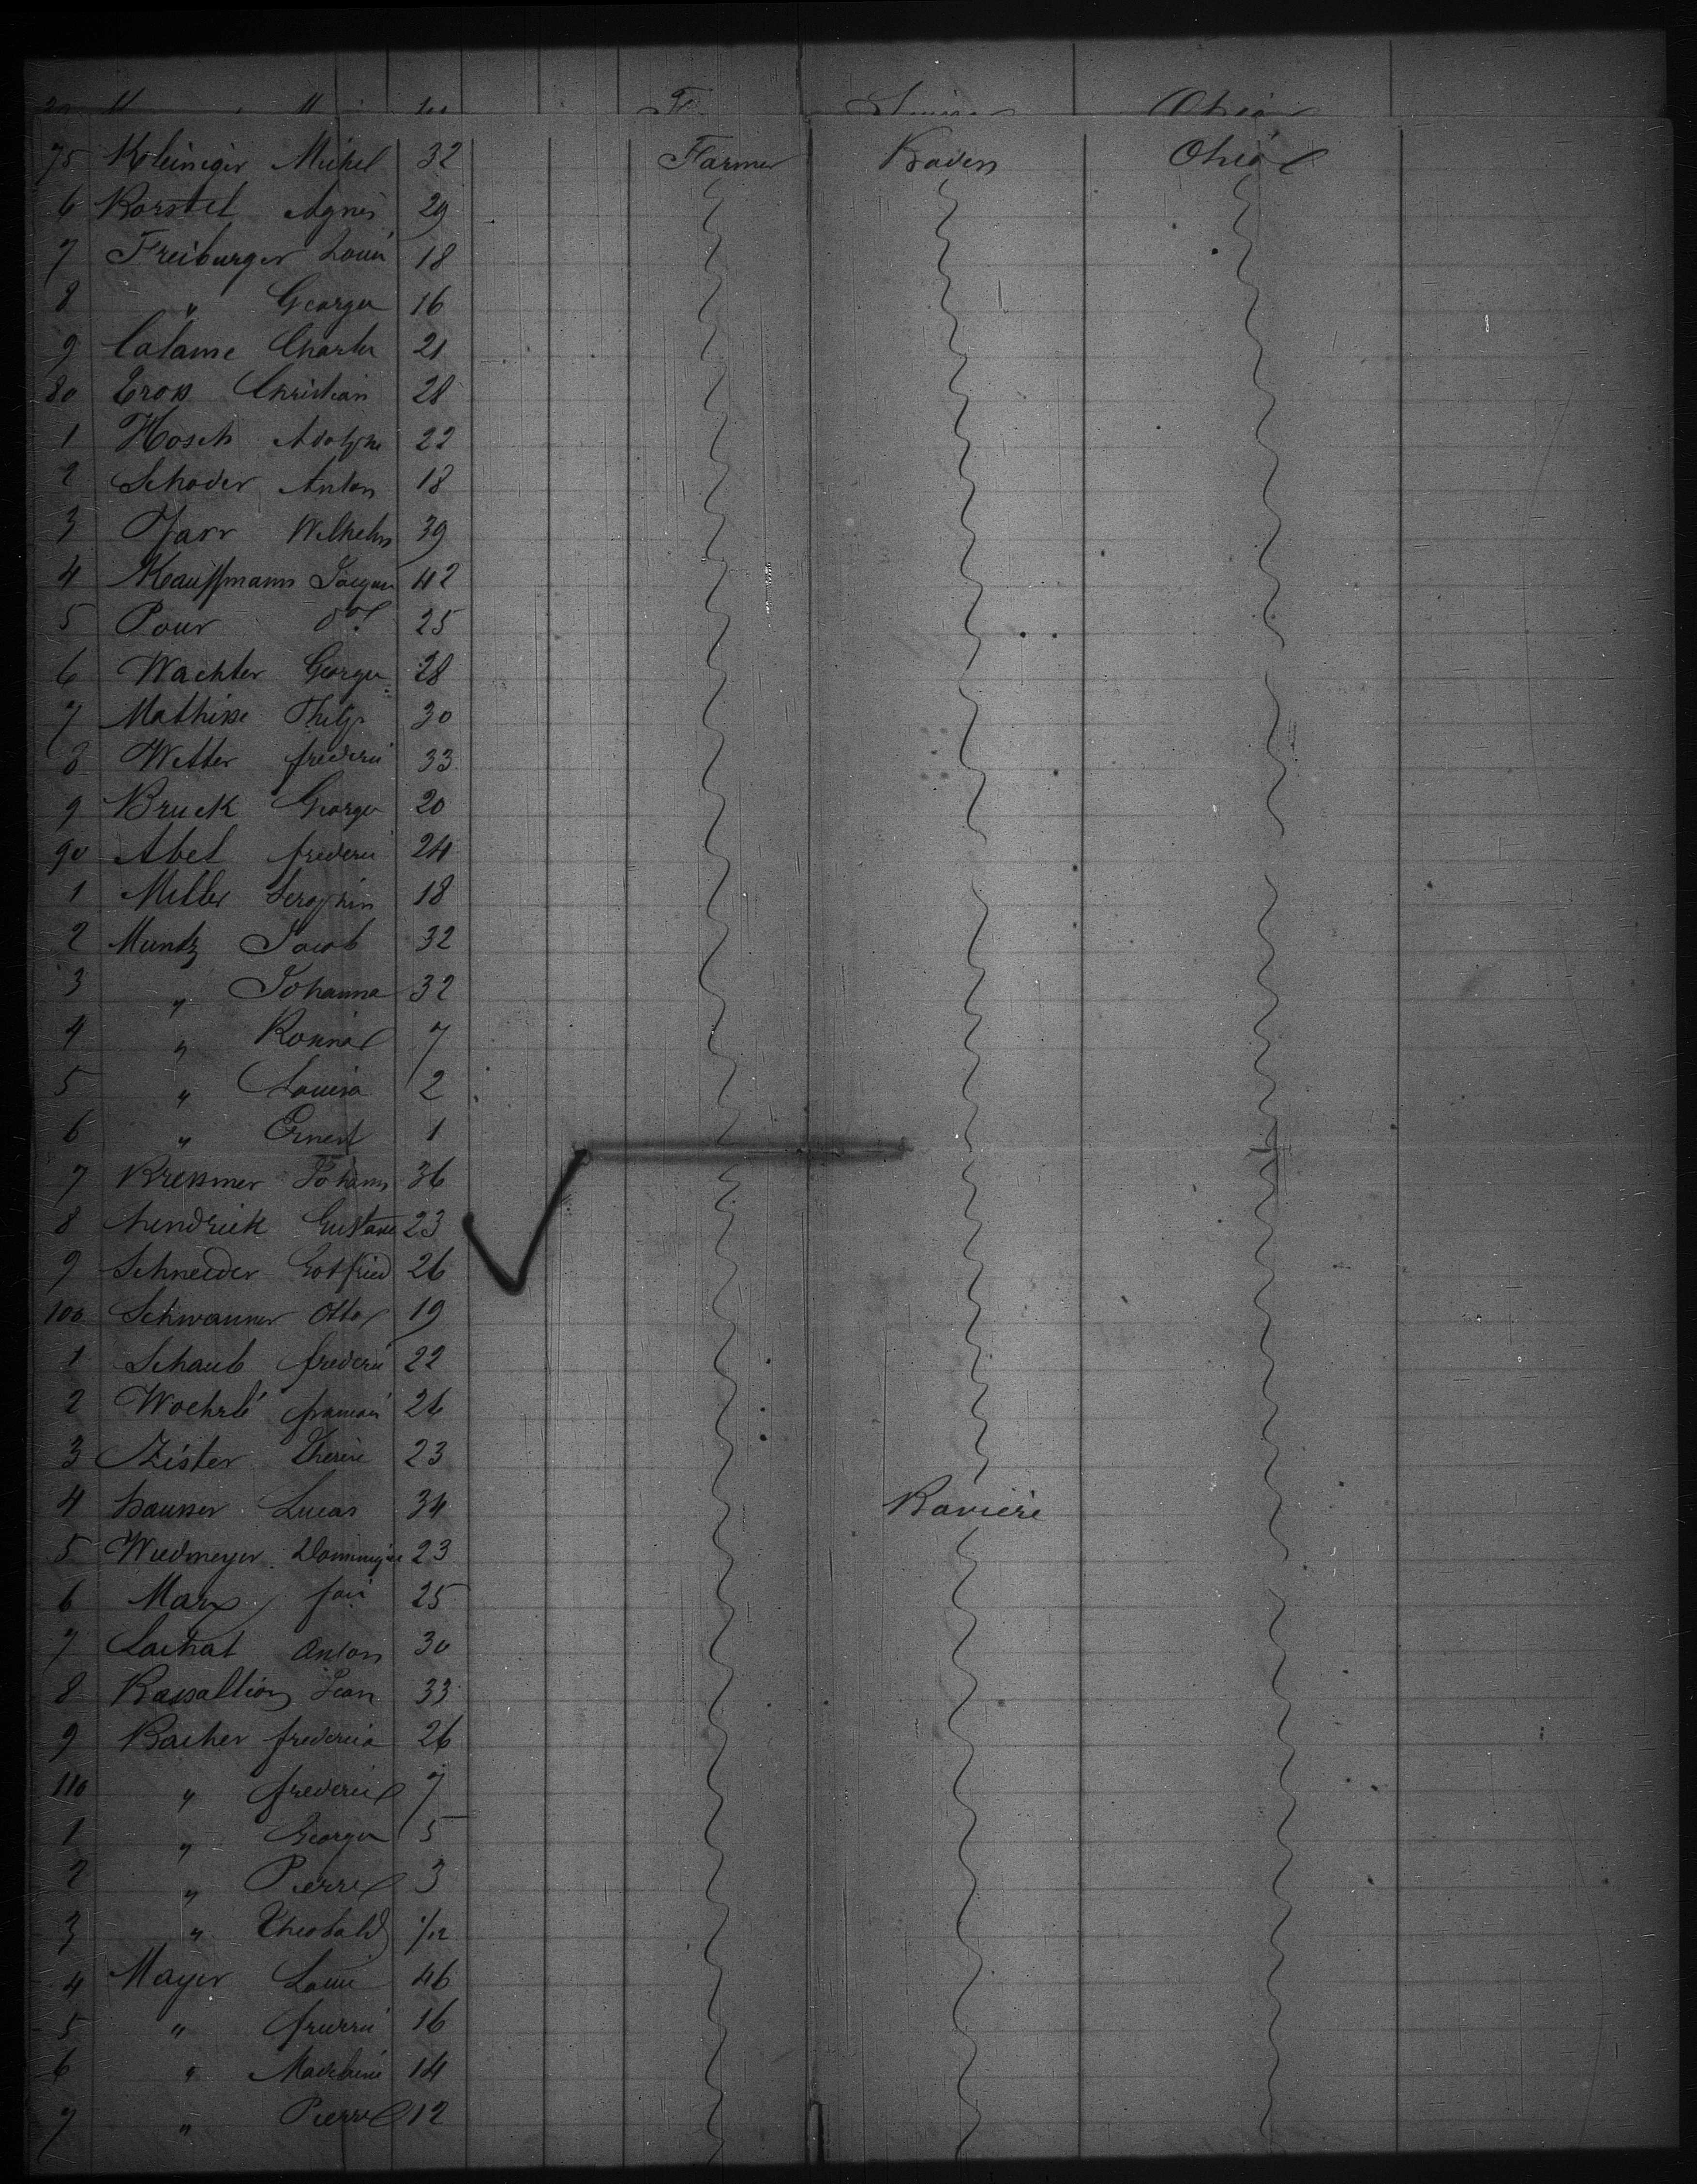 75 Kleiniger Michel 32 Farmer Baden Ohio
6 Borstel Agnes 29
7 Freiburger Louis 18
8 " Georges 16
9 Calame Charles 21
80 Tross Christian 28
1 Hosch Adolphe 22
2 Schoder Anton 18
3 Farr Wilhelm 39
4 Kauffmann Jacques 42
5 Pour do 25
6 Wachter Georges 28
7 Mathisse Philip 30
8 Wetter frederic 33
9 Bruck Georges 20
90 Abel frederic 24
1 Miller Seraphin 18
2 Muntz Jacob 32
3 " Johanna 32
4 " Rosina 7
5 " Louisa 2
6 " Ernest 1
7 Bressmer Johann 36
8 hendrick Gustave 23
9 Schneider Gotfried 26
100 Schwanner Otto 19
1 Schaub frederic 22
2 Woehrlé francois 26
3 Zister Therese 23
4 hausser Lucas 34 Baviere
5 Wiedmeyer Dominique 23
6 Marx 25
7 Lachat Anton 30
8 Bassaltion Jean 33
9 Bacher frederica 26
110 " frederic 7
1 " Georges 5
2 " Pierre 3
3 " Theobald /12
4 Mayer Louis 46
5 " 16
6 " Madeleine 14
7 " Pierre 12